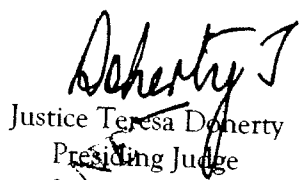 Doherty J
Justice Teresa Doherty
Presiding Judge